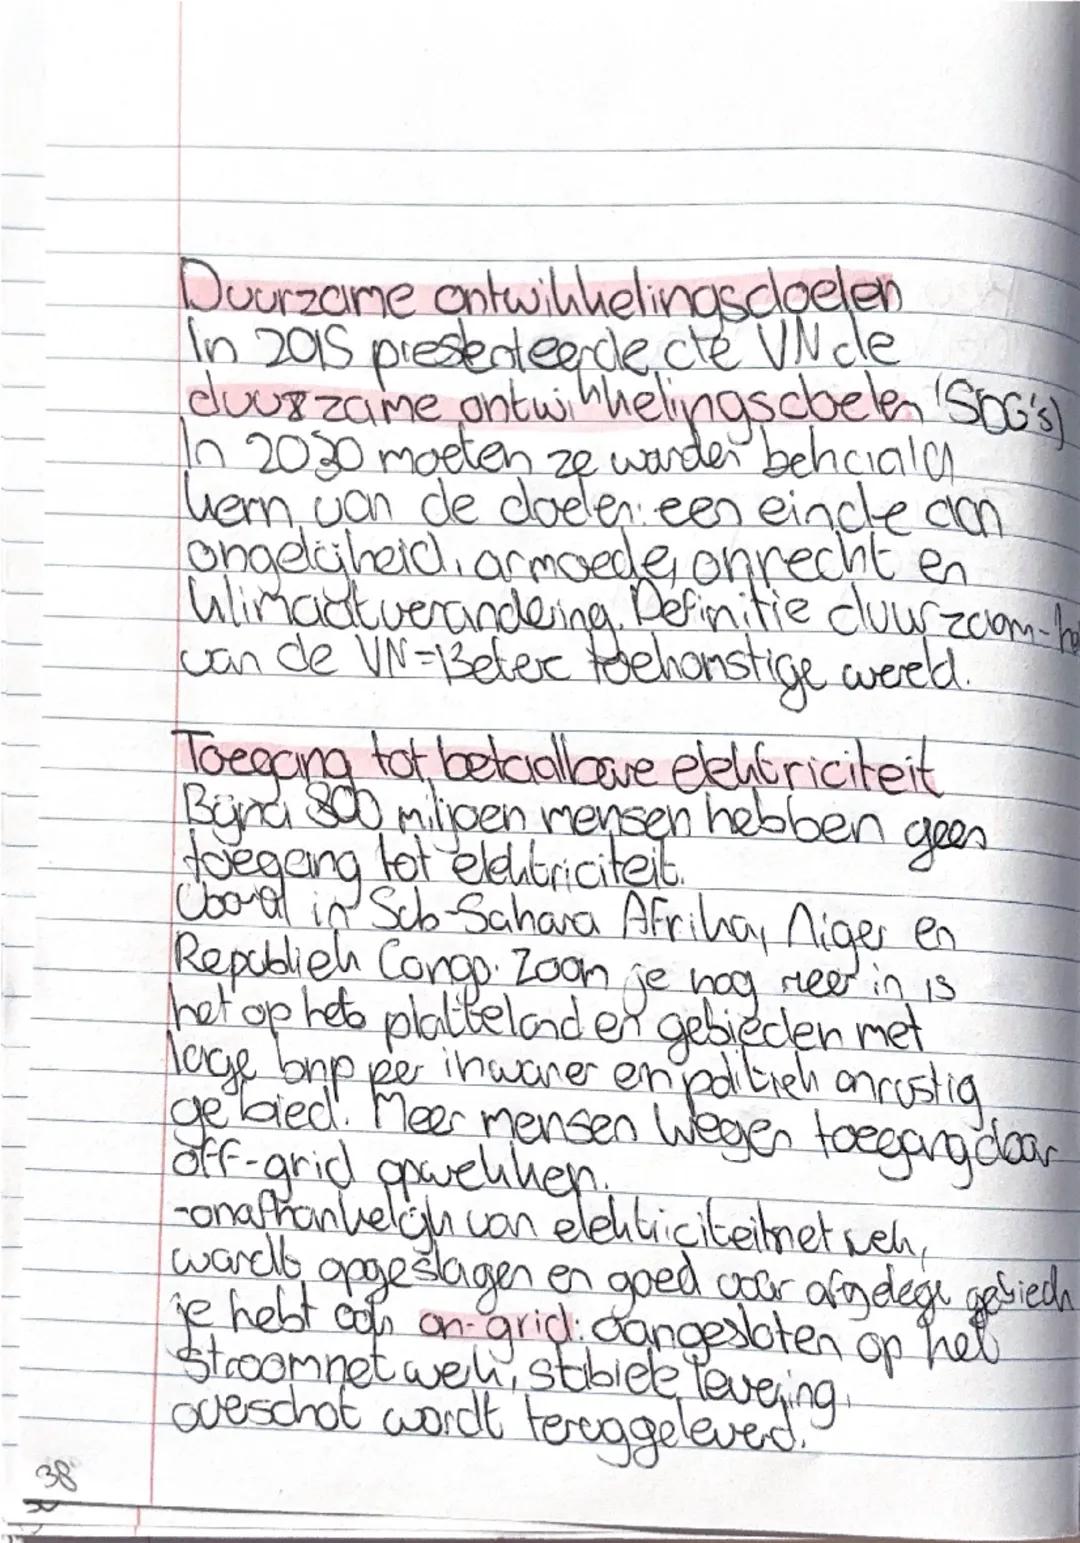 Duurzame ontwikkelingsdoelen
In 2015 presenteerde de VN de
duurzame ontwikkelingsdoelen (SDG's)
In 2030 moeten ze worden behaald
kern van de doelen: een einde aan
ongelijkheid, armoede, onrecht en
klimaatverandering. Definitie duurzaam-he
van de VN=Beter toekomstige wereld.
Toegang tot betaalbare elektriciteit
Bijna 800 miljoen mensen hebben geen
toegang tot elektriciteit.
Vooral in Sub-Sahara Afrika, Niger en
Republiek Congo. Zoom je nog meer in is
het op het platteland en gebieden met
lage bnp per inwoner en politiek onrustig
gebied. Meer mensen kregen toegang door
off-grid opwekken.
-onafhankelijk van elektriciteitnetwerk,
wordt opgeslagen en goed voor afgelegen gebieden
je hebt ook on-grid: aangesloten op het
stroomnetwerk, stabiele levering,
overschot wordt teruggeleverd.
38